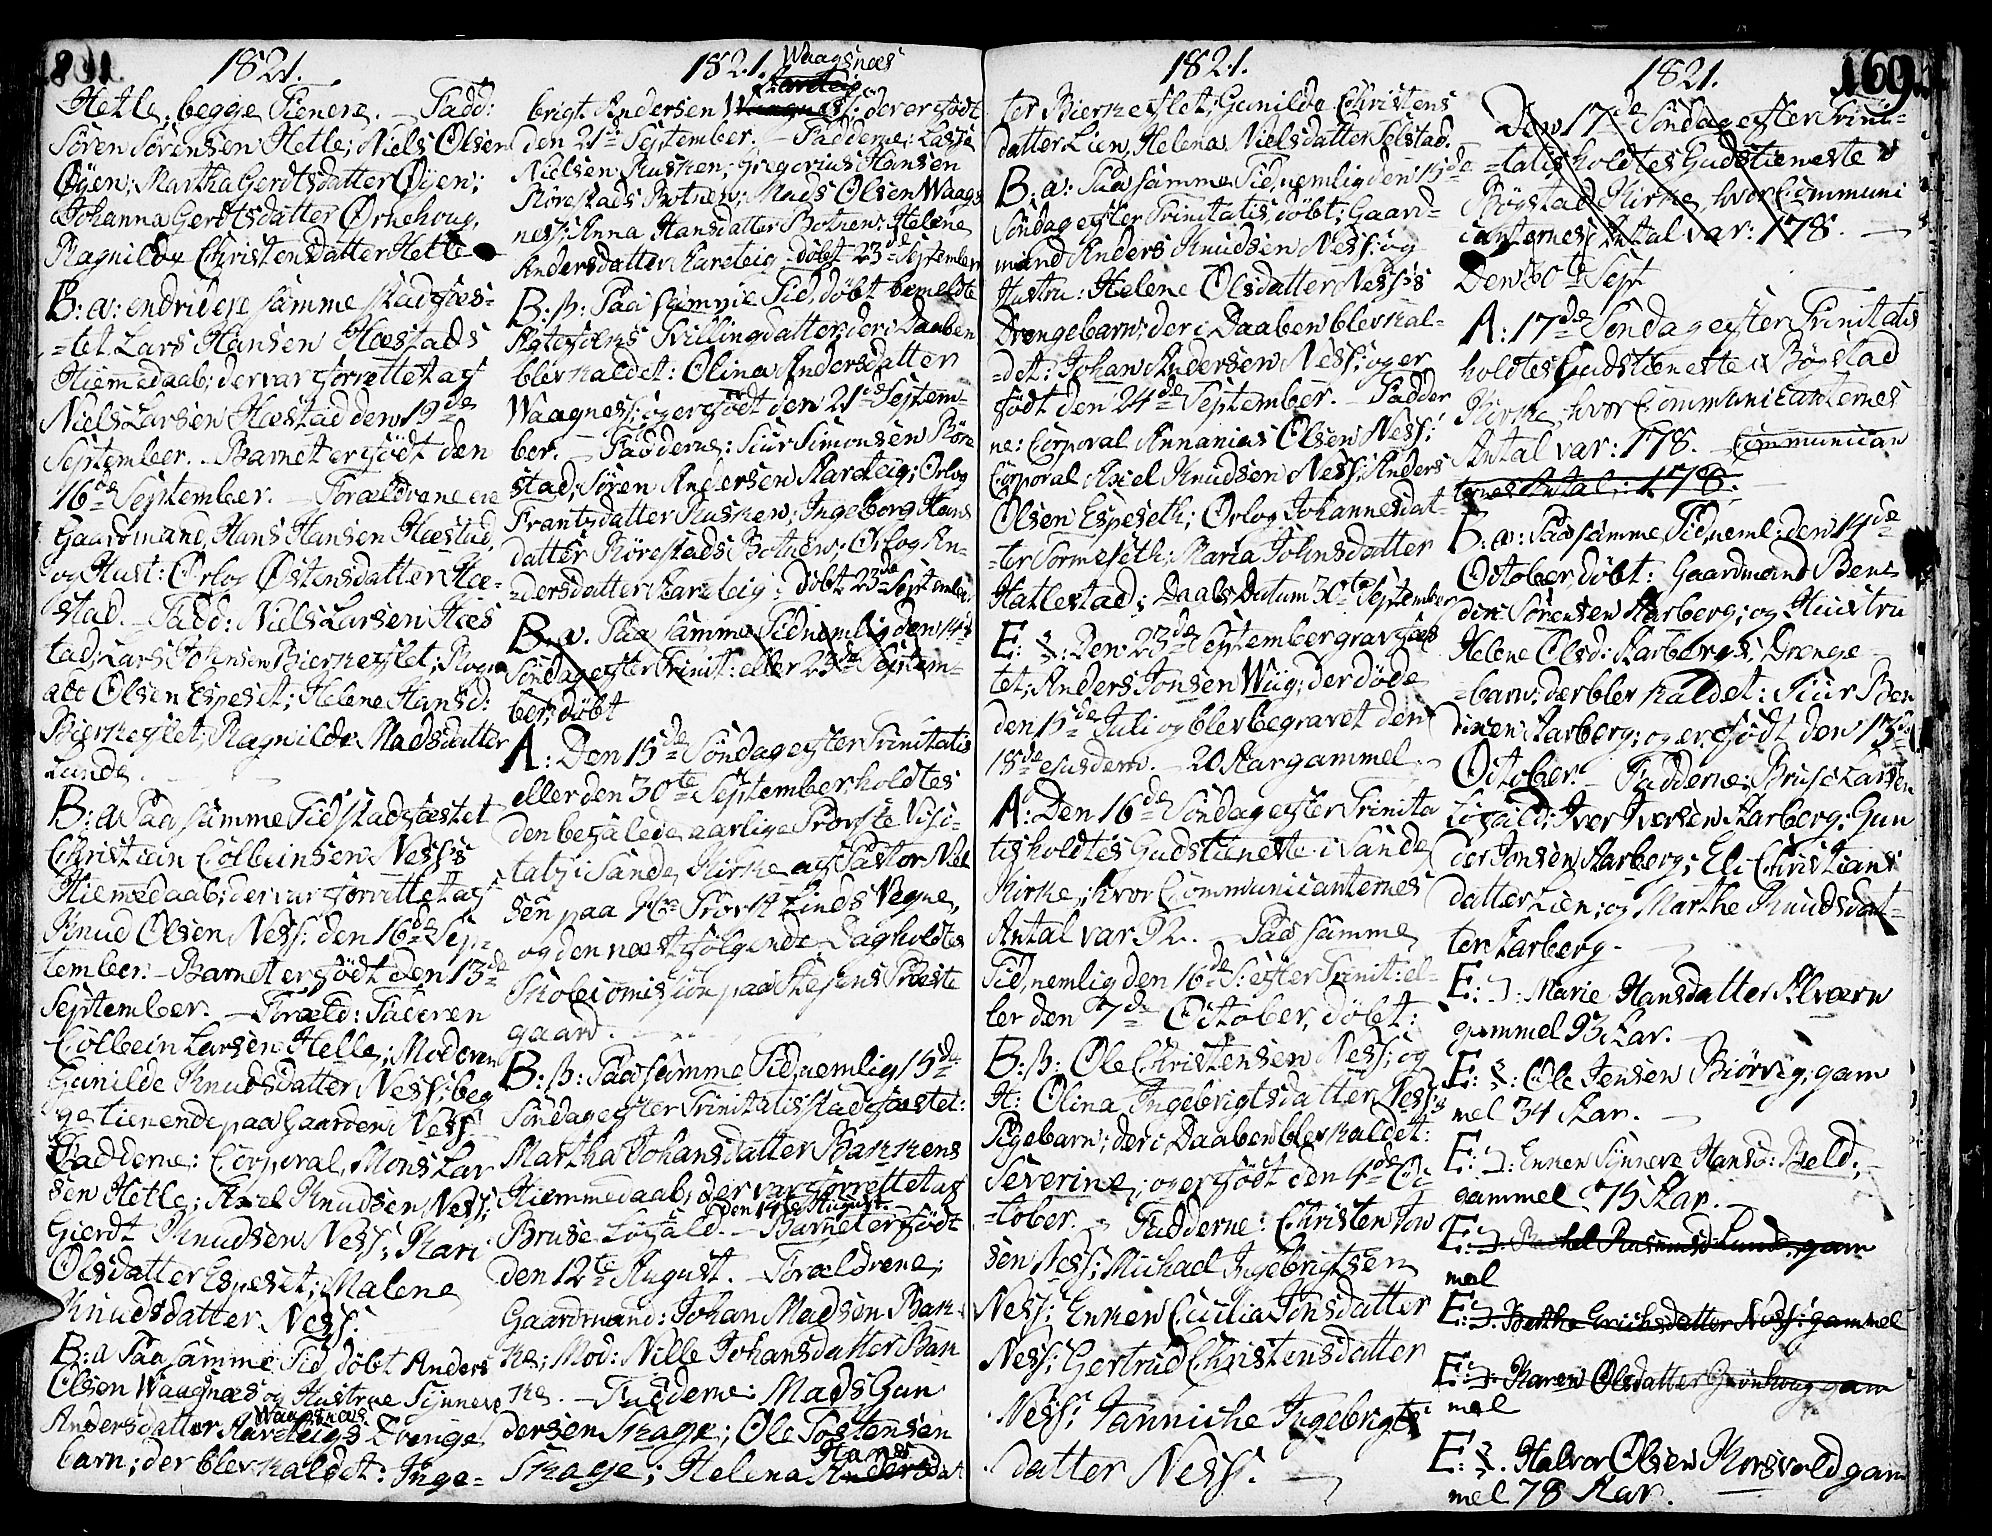 1821.
Hetle, begge Tienere. _ Fadd:
Sören Sörensen Hetle; Niels Olsen
Öyen; Martha Gerdtsdatter Öyen;
Johanna Gerdtsdatter Örnehoug,
Ragnilde Christensdatter Hetle
B: a: endvidere samme stadfæs-
=tet Lars Hansen Hæstads
Hiemedaab; der var forrettet af
Niels Larsen Hæstad den 19de
September. _ Barnet er född den
16de September. _ Forældrene ere
Gaardmand, Hans Hansen Hæstad,
og Hust: Örlog Östensdatter Hæ-
stad. _ Fadd: Niels Larsen Hæs
tad; Lars Johnsen Bierkeflet;
Olsen Espeset; Helene Hansd:
Bierkeflet; Ragnilde Madsdatter
Lunde.
B: a Paa samme Tid stadfæstet
Christian Colbeinsen Ness's
Hiemedaab; der var forrettet af
Knud Olsen Ness; den 16de Sep-
tember. _ Barnet er född den 13de
September. _ Foræld: Faderen
Colbein Larsen Helle; Moderen
Gunilde Knudsdatter Ness; beg
ge tienende paa Gaarden Ness
Fadderne: Corporal Mons Lar
sen Hetle; Axel Knudsen Ness;
Gierdt Knudsen Ness; Kari
Olsdatter Espeset; Malene
Knudsdatter Ness.
B: a Paa samme Tid döbt Anders
Olsen Waagnæs og Hustrue Synneve
Waagsnæs
Andersdatter Karsteigs Drenge
barn; der blev kaldet: Inge=
1821.
Waagsnæs
brigt Andersen der er födt
den 21de September. _ Fadderne: Lasse
Nielsen Rusken; Gregorius Hansen
Rörestads Botnen; Mads Olsen Waags
ness; Anna Hansdatter Botnen; Helene
Andersdatter Karsteig döbt 23de September
B: b: Paa samme Tid, döbt bemeldte
Tvillingdatter; der i Daaben
blev kaldet: Olina Andersdatter
Waagness; og er födt den 21de Septem-
ber. _ Fadderne: Siur Simonsen Röre
stad; Sören Andersen Karsteig; Örlog
Frantzdatter Rusken; Ingeborg Hans
datter Rörestads Botnen; Örlog An-
dersdatter Karsteig: Döbt 23de September
B: a. Paa samme Tid nemlig den 14de
Söndag efter Trinit: eller 23de Septem-
ber; döbt
A: Den 15de Söndag efter Trinitatis
eller den 30te September holdtes
den befalede aarlige Provste Visi-
tatz i Sande Kirke af Pastor Niel
sen paa Hr: Provst Linds Vegne,
og den næst fölgende Dag holdtes
Skolecomission paa Stedens Præste
gaard.
B: b: Paa samme Tid nemlig 15de
Söndag efter Trinitatis stadfæstet:
Martha Johansdatter Bakkens
Hiemmedaab; der var forrettet af
den 14de August
Bruse Löfald. _ Barnet er födt
den 12te August. _ Forældrene;
Gaardmand: Johan Madsen Bak-
ke; Mod: Nille Johansdatter Bak
ke. _ Fadderne: Mads Gun
dersen Skage; Ole Tostensen
Hans
Skage; Helena Andersdat
1821.
ter Bierkeflet; Gunilde Christens
datter Lien, Helena Nielsdatter Solstad.
B: a: Paa samme Tid, nemlig den 15de
Söndag efter Trinitatis, döbt; Gaard=
mand Anders Knudsen Ness; og
Hustru: Helene Olsdatter Ness's
Drengebarn; der i Daaben blev kal-
=det: Johan Andersen Ness; og er
födt den 24de September. _ Fadder
ne: Corporal Annanias Olsen Ness;
Corporal Axel Knudsen Ness; Anders
Olsen Espeseth; Örlog Johannesdat-
=ter Tormeseth; Maria Johnsdatter
Hatlestad; Daabs Datum 30te September
E: Den 23de September gravfæs
tet; Anders Jonsen Wiig; der döde
den 15de Juli og blev begravet den
18de ejusdem. _ 20 Aar gammel. _
A: Den 16de Söndag efter Trinita
tis holdtes Gudstieneste i Sande
Kirke; hvor Communicanternes
Antal var 92. _ Paa samme
Tid, nemlig den 16de S: efter Trinit: el-
ler den 7de October, döbt:
B: b: Ole Christensen Ness; og
H: Olina Ingebrigtsdatter Ness's
Pigebarn; der i Daaben blev kaldet:
Severine; og er födt den 4de Oc
=tober. _ Fadderne: Christen Jon
sen Ness; Michael Ingebrigtsen
Ness; Enken Cicilia Jonsdatter
Ness; Gertrud Christensdatter
Ness; Janniche Ingebrigts
datter Ness. _
1821.
169
Den 17de Söndag efter Trini-
=tatis holdtes Gudstieneste i
Bögstad Kirke, hvor Communi
canternes Antal var: 178. _
Den 30te Sept
A: 17de Söndag efter Trinitatis
holdtes Gudstieneste i Bögstad
Kirke, hvor Communicanternes
Antal var: 178. _ Communican
ternes Antal: 178.
B: a: Paa samme Tid, neml: den 14de
October döbt: Gaardmand Ben
dix Sörensen Aarberg; og Hustru
Helene Olsd: Aarbergs; Drenge-
=barn; der blev kaldet: Siur Ben
dixen Aarberg; og er födt den 13de
October. _ Fadderne: Bruse Larsen
Löfald; Iver Iversen Aarberg; Gun
der Jonsen Aarberg; Eli Christians
datter Lien; og Marthe Knudsdat-
ter Aarberg.
E: Marie Hansdatter Alværn
gammel 93 Aar. _
E: Ole Jensen Biörvig; gam
mel 34 Aar. _
E: Enken Synneve Hansd: Qveld;
gammel 75 Aar. _
E: Rachel Rasmusd: Lunde, gam
mel
E: Berthe Erichsdatter Ness; gammel
E: Karen Olsdatter Grönhoug gam
mel
E: Halvor Olsen Korsvold gam
mel 78 Aar.